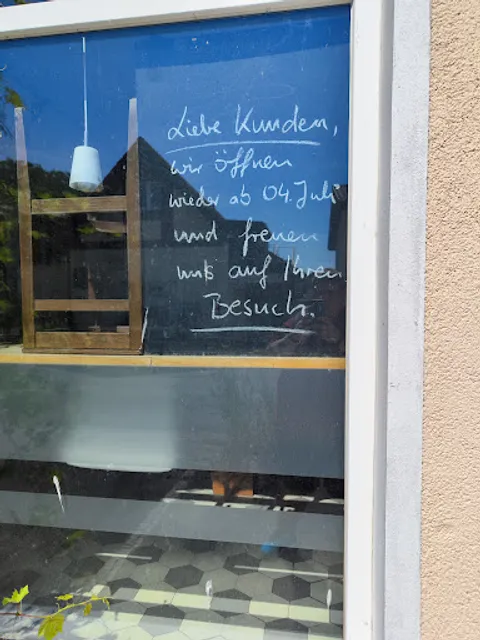 Liebe Kunden,
wir öffnen
wieder ab 04. Juli
und freuen
uns auf Ihren
Besuch.